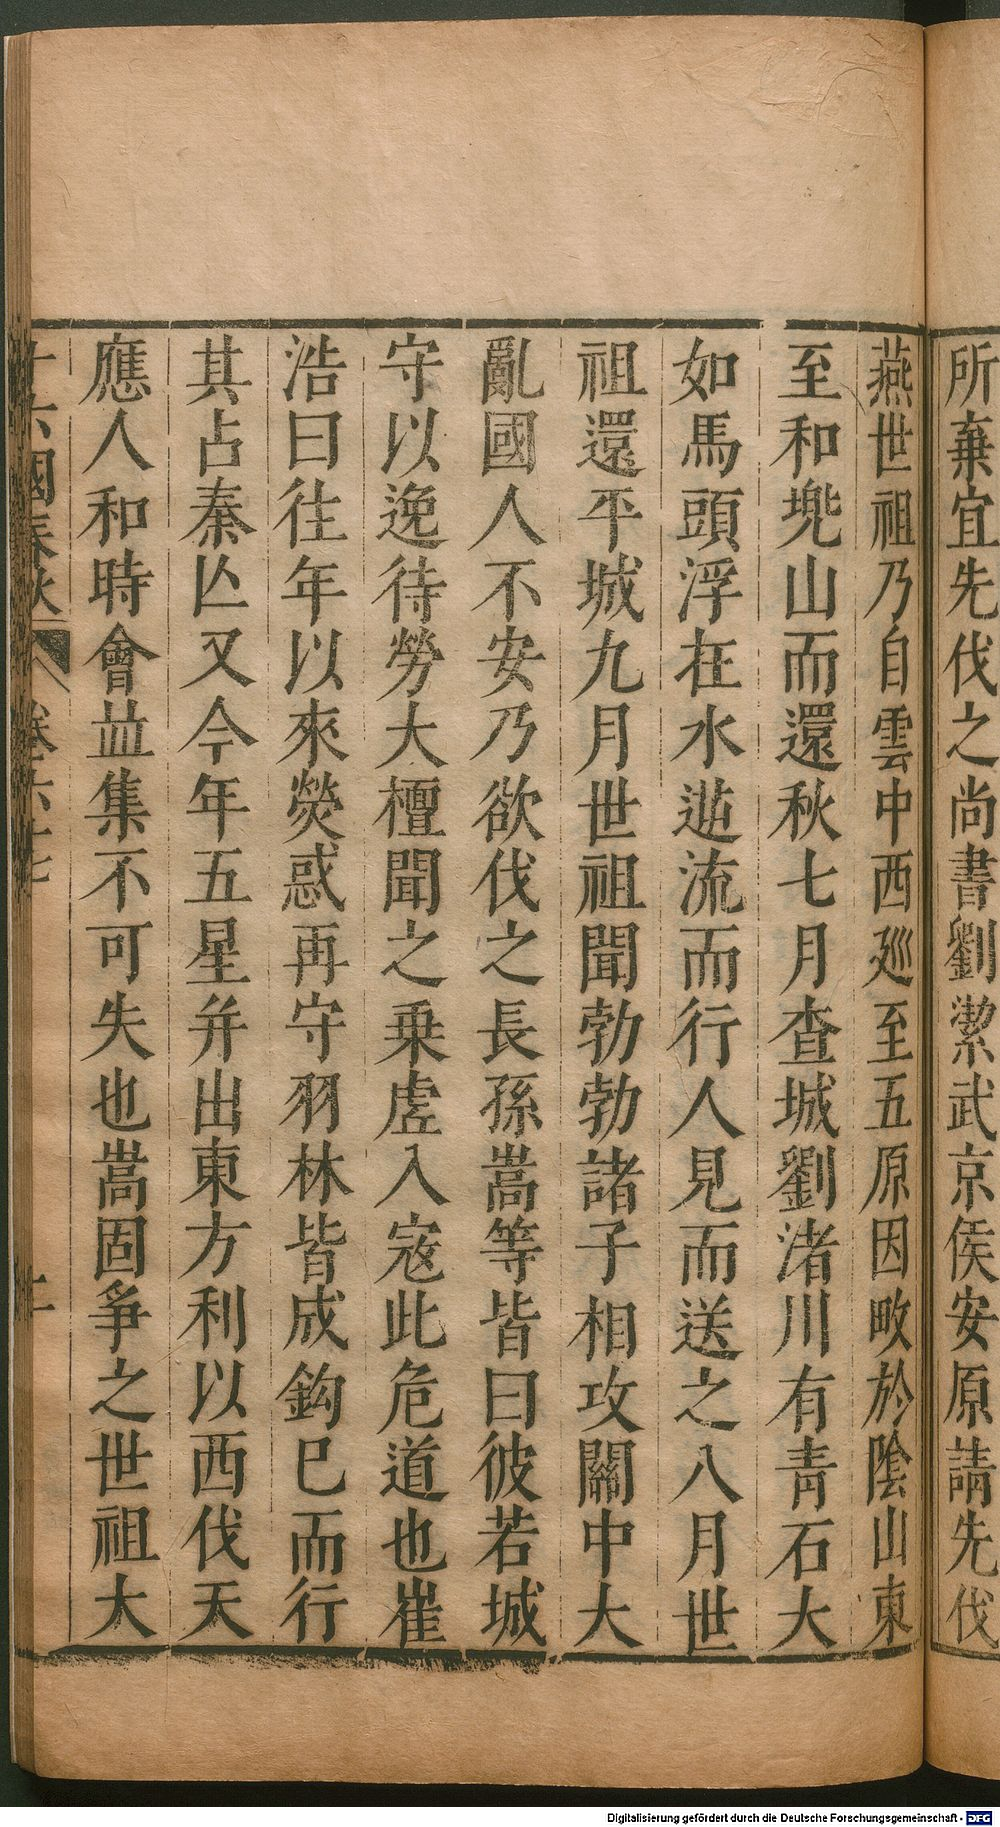 所棄宜先伐之尚書劉潔武京侯安原請先伐
燕世祖乃自雲中西廵至五原因畋於陰山東
至和兠山而還秋七月查城劉渚川有青石大
如馬頭浮在水逆流而行人見而送之八月世
祖還平城九月世祖聞勃勃諸子相攻關中大
亂國人不安乃欲伐之長孫嵩等皆曰彼若城
守以逸待勞大檀聞之乗虗入宼此危道也崔
浩曰往年以來熒惑再守羽林皆成鈎巳而行
其占秦亾又今年五星并出東方利以西伐天
應人和時會並集不可失也嵩固爭之世祖大
十六國春秋 卷六十七
Digitalisierung gefördert durch die Deutsche Forschungsgemeinschaft - DFG